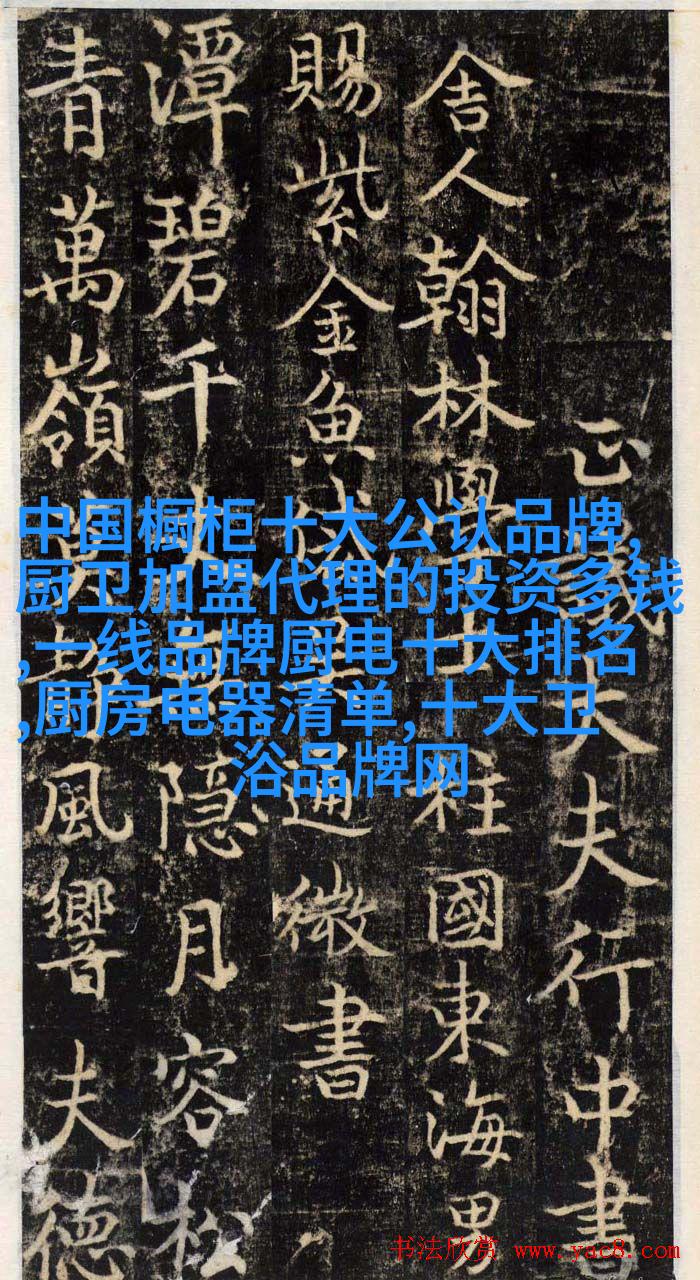 正議大夫行中書
舍人翰林學士柱國東海男
賜紫金魚袋通微書
潭碧千隱月容松
青萬嶺風響夫德
中国橱柜十大公认品牌,
厨卫加盟代理的投资多钱
,一线品牌厨电十大排名
,厨房电器清单,十大卫
浴品牌网
书法欣赏 www.yac8.com